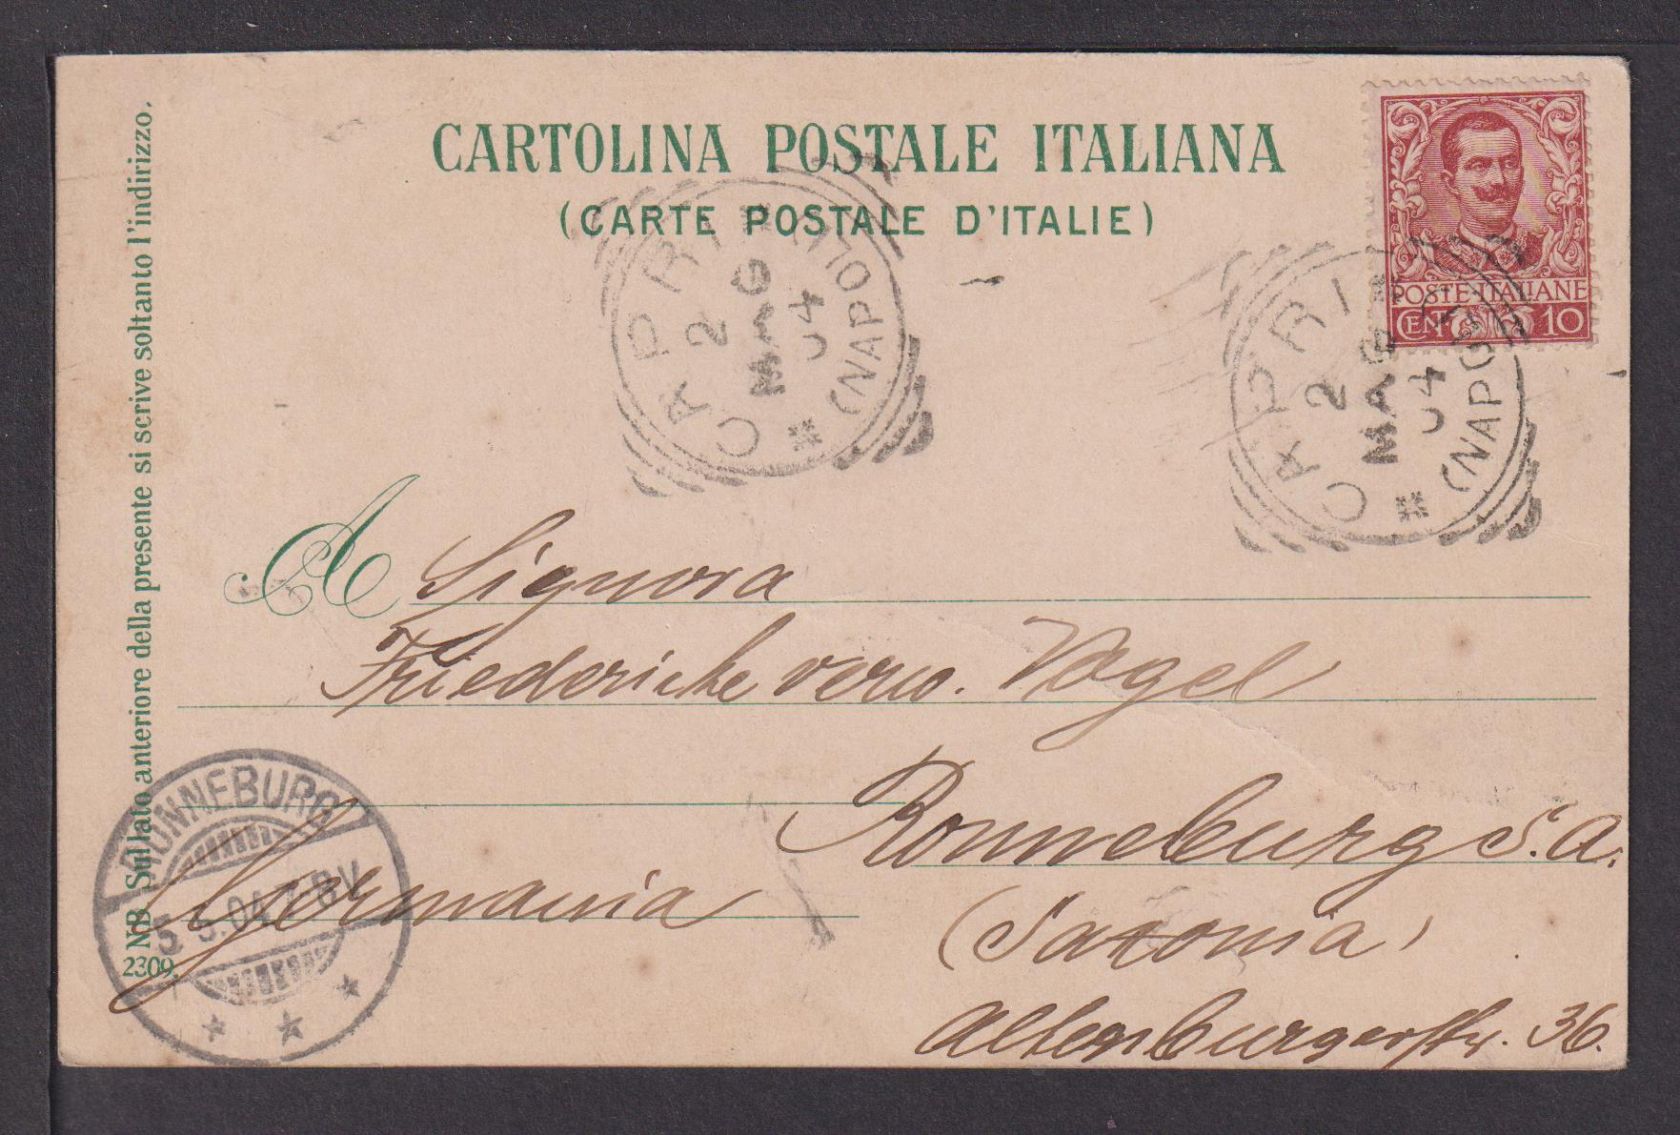 CARTOLINA POSTALE ITALIANA
(CARTE POSTALE D'ITALIE)
POSTE-ITALIANE
CENT. 10
CAPRI
2 MAG 04
(NAPOLI)
CAPRI
2 MAG 04
(NAPOLI)
A Signora
Friederike verw. Vogel
Ronneburg S.A.
Germania
(Saxonia)
Altenburgerstr. 36.
RONNEBURG
5.5.04.7-8V.
NB Sul lato anteriore della presente si scrive soltanto l'indirizzo.
2309.